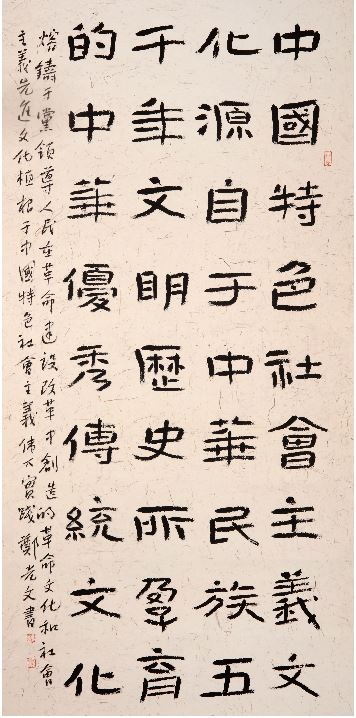 中國特色社會主義文
化源自于中華民族五
千年文明歷史所孕育
的中華優秀傳統文化
熔鑄于黨領導人民在革命建設改革中創造的革命文化和社會
主義先進文化植根于中國特色社會主義偉大實踐鄭文書